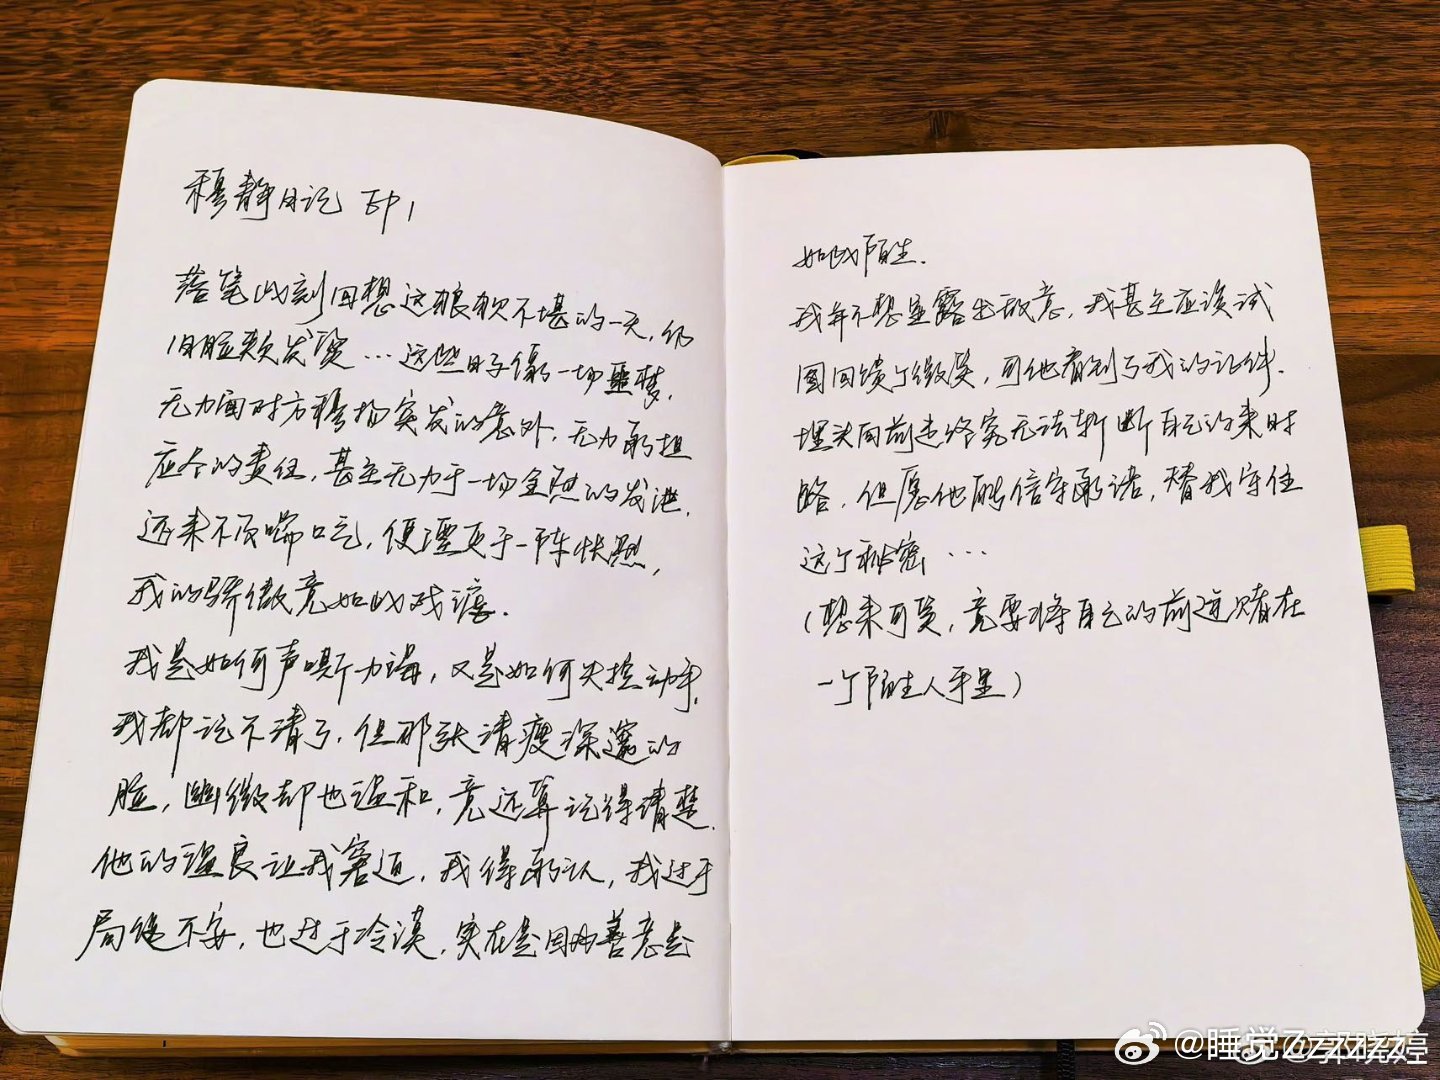 穆静日记 EP1
落笔此刻回想这狼狈不堪的一天，仍
旧脸颊发烫…这些日子像一场噩梦，
无力面对方穆扬突发的意外，无力承担
应尽的责任，甚至无力于一场全然的发泄，
还来不及喘口气，便湮灭于一阵怅然，
我的骄傲竟如此残损。
我是如何声嘶力竭，又是如何失控动手，
我都记不清了，但那张清瘦深邃的
脸，幽微却也温和，竟还算记得清楚。
他的温良让我窘迫，我得承认，我过于
局促不安，也过于冷漠，实在是因为善意是
如此陌生。
我并不想显露出敌意，我甚至应该试
图回馈个微笑，可他看到了我的证件。
埋头向前走终究无法斩断自己的来时
路，但愿他能信守承诺，替我守住
这个秘密…
（想来可笑，竟要将自己的前途赌在
一个陌生人手里）
@睡觉Zzzzzz
@郭晓婷